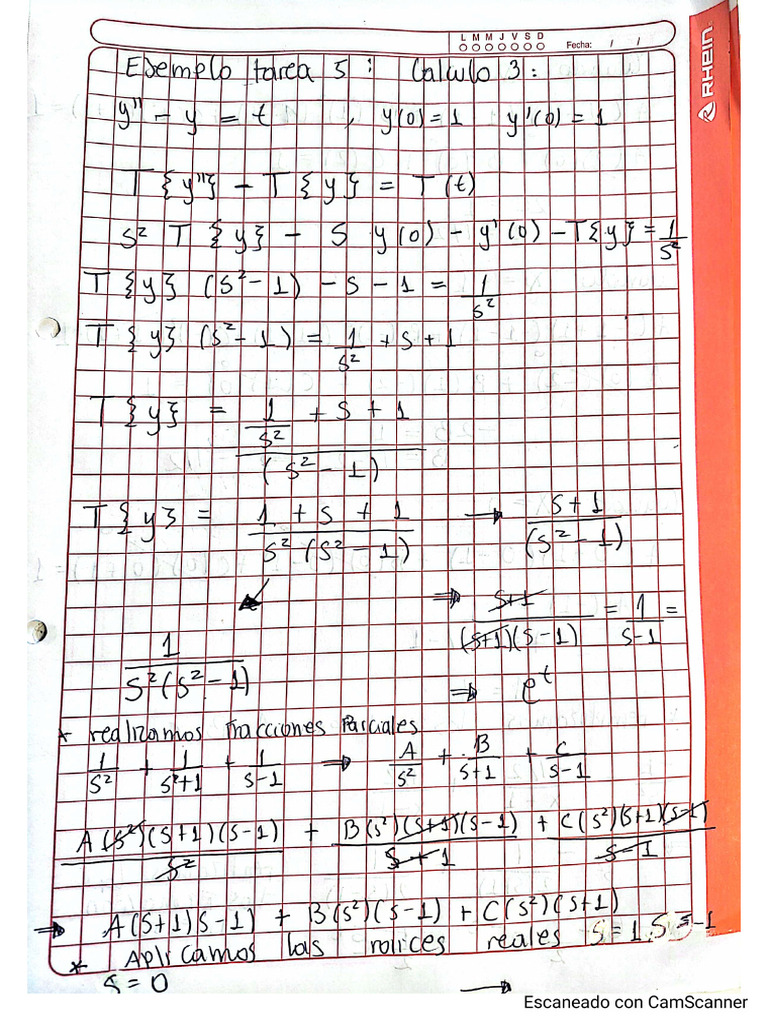 L M M J V S D
Fecha: / /
RHein
Ejemplo tarea 5 : Calculo 3 :
y'' - y = t , y(0) = 1 y'(0) = 1
T{y''} - T{y} = T(t)
s² T {y} - S y(0) - y'(0) - T{y} = 1/s²
T {y} (s² - 1) - s - 1 = 1/s²
T {y} (s² - 1) = 1/s² + s + 1
T {y} = (1/s² + s + 1)/(s² - 1)
T {y} = (1 + s + 1)/(s² (s² - 1)) → (s + 1)/(s² - 1)
⇒ (s+1)/((s+1)(s-1)) = 1/(s-1) =
1/(s²(s² - 1)) ⇒ e^t
* realizamos fracciones Parciales
1/s² + 1/(s²+1) + 1/(s-1) ⇒ A/s² + B/(s+1) + C/(s-1)
A(s²)(s+1)(s-1)/s² + B(s²)(s+1)(s-1)/(s+1) + C(s²)(s+1)(s-1)/(s-1)
⇒ A(s+1)(s-1) + B(s²)(s-1) + C(s²)(s+1)
* Aplicamos las raices reales s=1, s=-1
s = 0 →
Escaneado con CamScanner